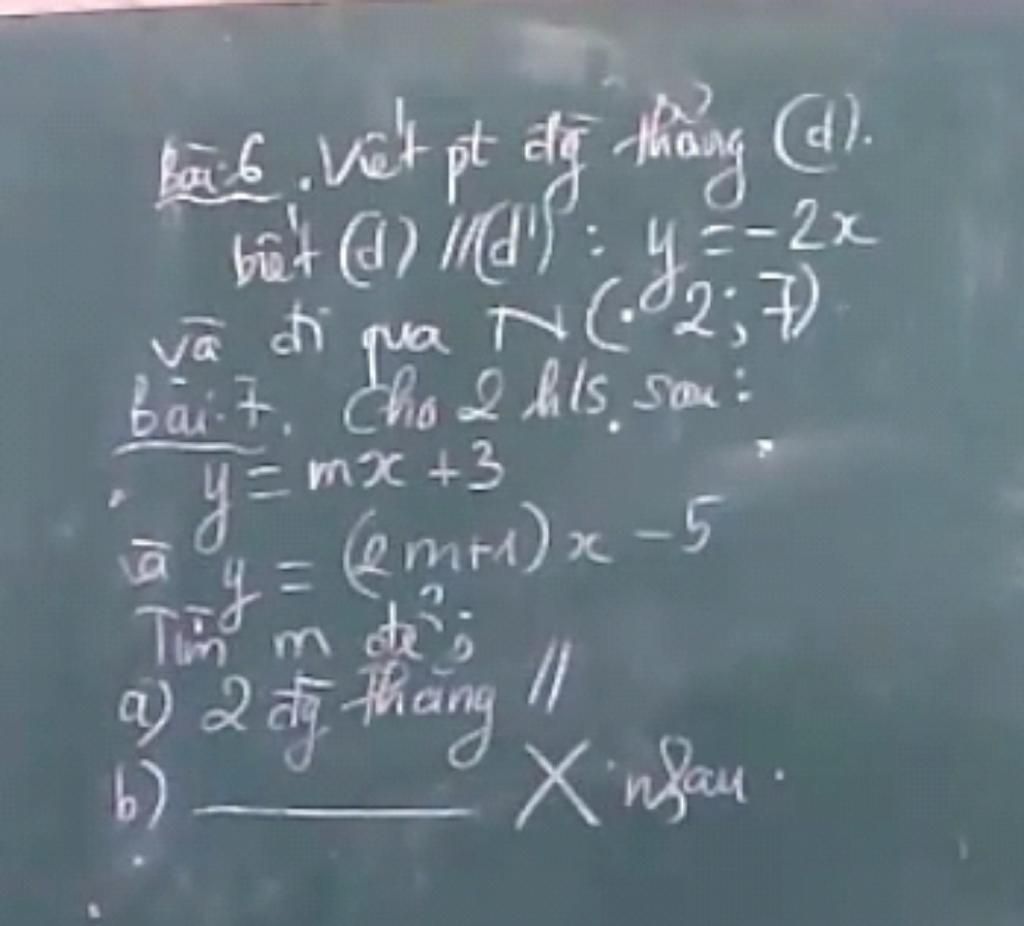 Bài 6. Viết pt đg thẳng (d).
biết (d) // (d'): y = -2x
và đi qua N(2; 7)
Bài 7. Cho 2 h/s sau:
y = mx + 3
và y = (2m+1)x - 5
Tìm m để:
a) 2 đg thẳng //
b) ———— X nhau.